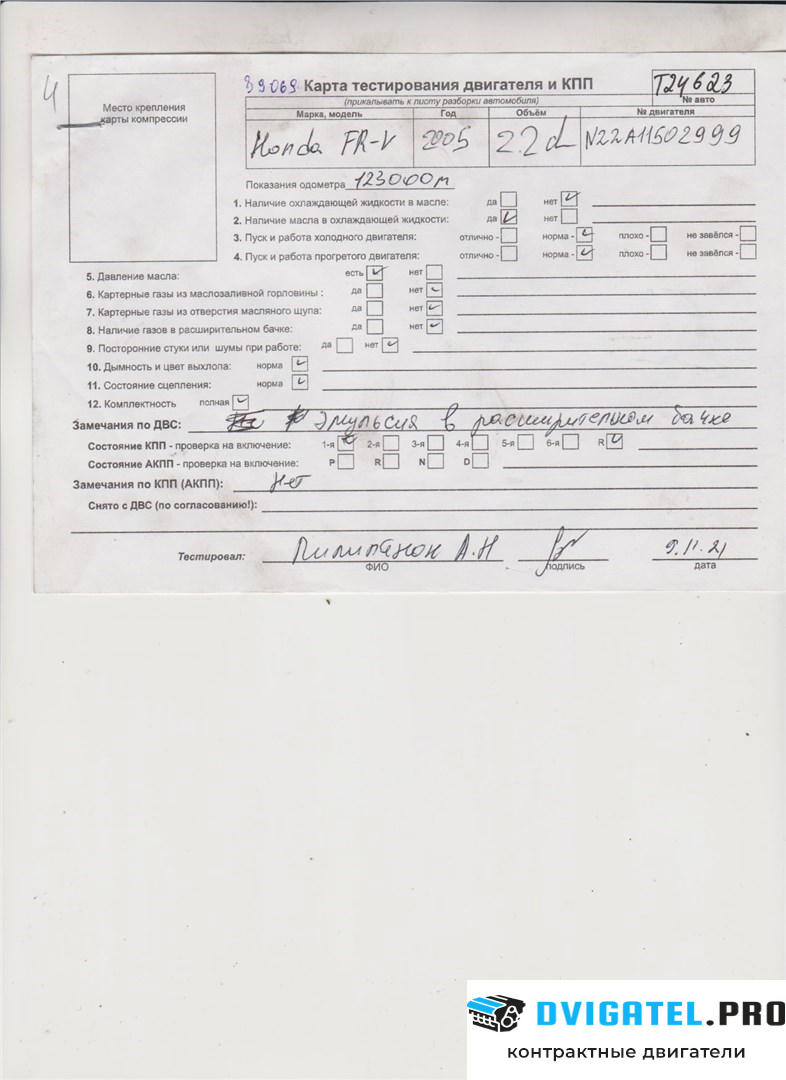 4
Место крепления
карты компрессии
39069 Карта тестирования двигателя и КПП T24623
(прикалывать к листу разборки автомобиля) № авто
Марка, модель Год Объём № двигателя
Honda FR-V 2005 2.2d N22A11502999
Показания одометра 123000м
1. Наличие охлаждающей жидкости в масле: да нет
2. Наличие масла в охлаждающей жидкости: да нет
3. Пуск и работа холодного двигателя: отлично - норма - плохо - не завёлся -
4. Пуск и работа прогретого двигателя: отлично - норма - плохо - не завёлся -
5. Давление масла: есть нет
6. Картерные газы из маслозаливной горловины : да нет
7. Картерные газы из отверстия масляного щупа: да нет
8. Наличие газов в расширительном бачке: да нет
9. Посторонние стуки или шумы при работе: да нет
10. Дымность и цвет выхлопа: норма
11. Состояние сцепления: норма
12. Комплектность полная
Замечания по ДВС: Эмульсия в расширительном бачке
Состояние КПП - проверка на включение: 1-я 2-я 3-я 4-я 5-я 6-я R
Состояние АКПП - проверка на включение: P R N D
Замечания по КПП (АКПП): Нет
Снято с ДВС (по согласованию!):
Тестировал: Пилипанок А.Н 9.11.21
ФИО подпись дата
DVIGATEL.PRO
контрактные двигатели